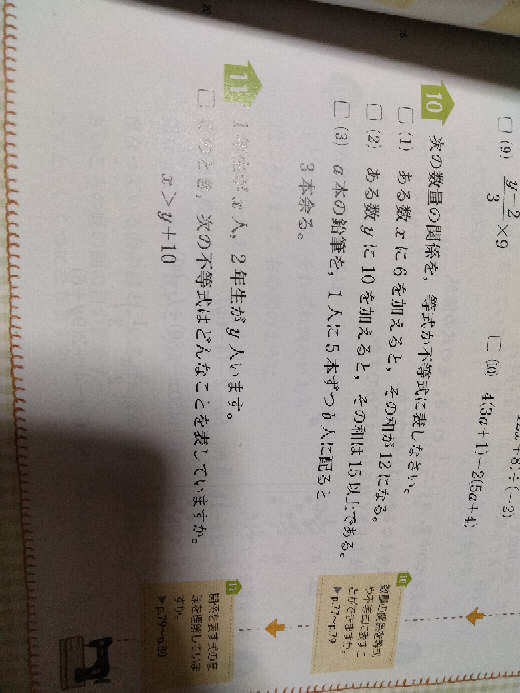 (9) (y−2)/3 ×9
4(3a+1)−2(5a+4)
10 次の数量の関係を，等式か不等式に表しなさい。
(1) ある数 x に 6 を加えると，その和が 12 になる。
(2) ある数 y に 10 を加えると，その和は 15 以上である。
(3) a 本の鉛筆を，1 人に 5 本ずつ b 人に配ると
3 本余る。
10
▶p.77〜p.79
11 1年生が x 人，2 年生が y 人います。
このとき，次の不等式はどんなことを表していますか。
x＞y＋10
11